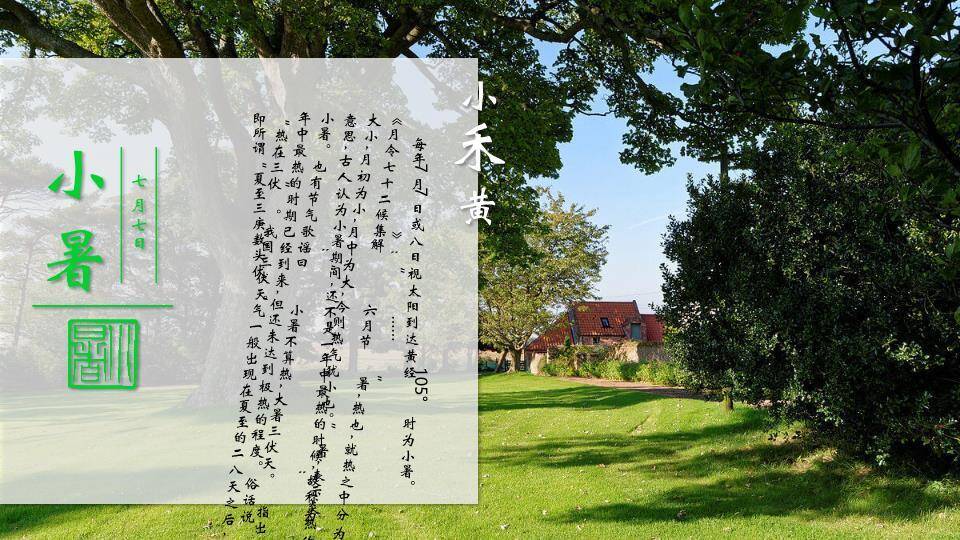 小禾黄
每年7月7日或八日视太阳到达黄经105°时为小暑。
《月令七十二候集解》："……
六月节
暑，热也，就热之中分为
大小，月初为小，月中为大，今则热气犹小也。"
意思，古人认为小暑期间，还不是一年中最热的时候，
小暑。也有节气歌谣曰："小暑不算热，大暑三伏天。"
年中最热的时期已经到来，但还未达到极热的程度。俗话说
"热在三伏"。我国三伏天气一般出现在夏至的二八天之后，
即所谓"夏至三庚数头伏
指出
七月七日
小暑